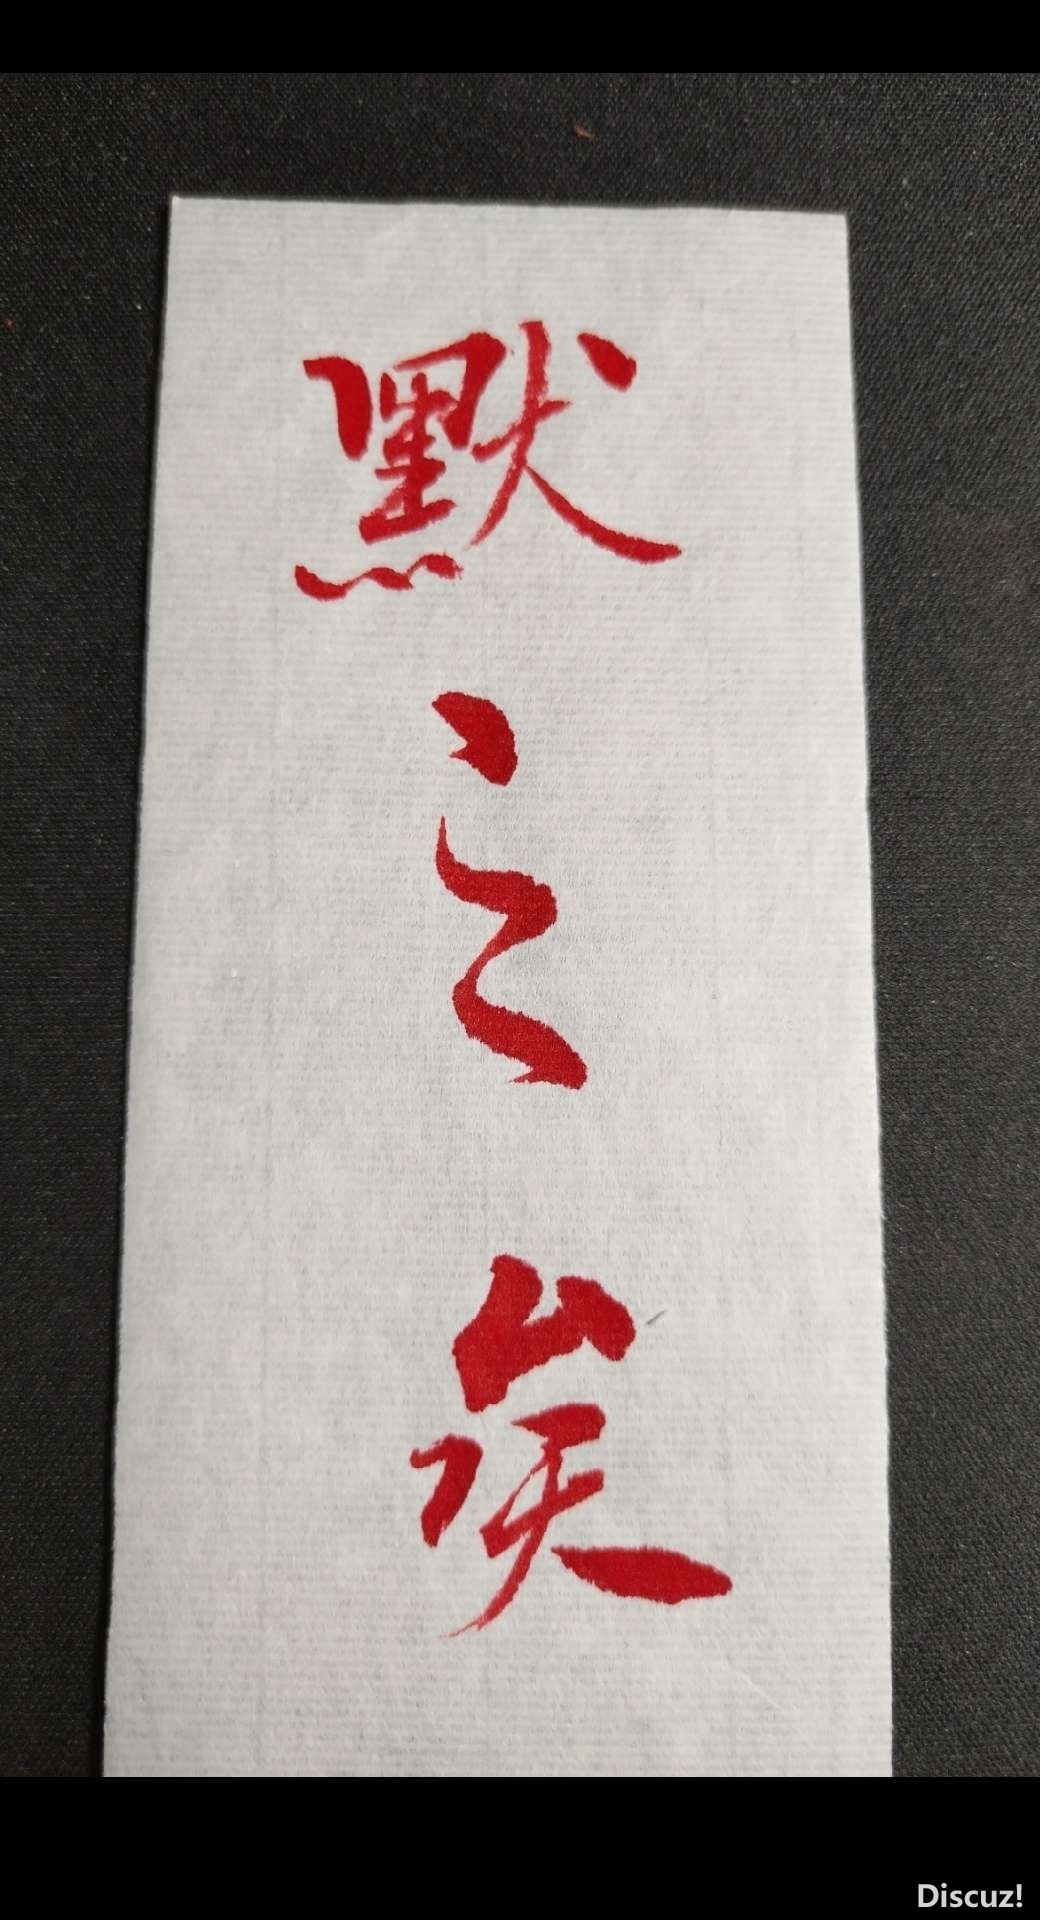 默之矣
Discuz!